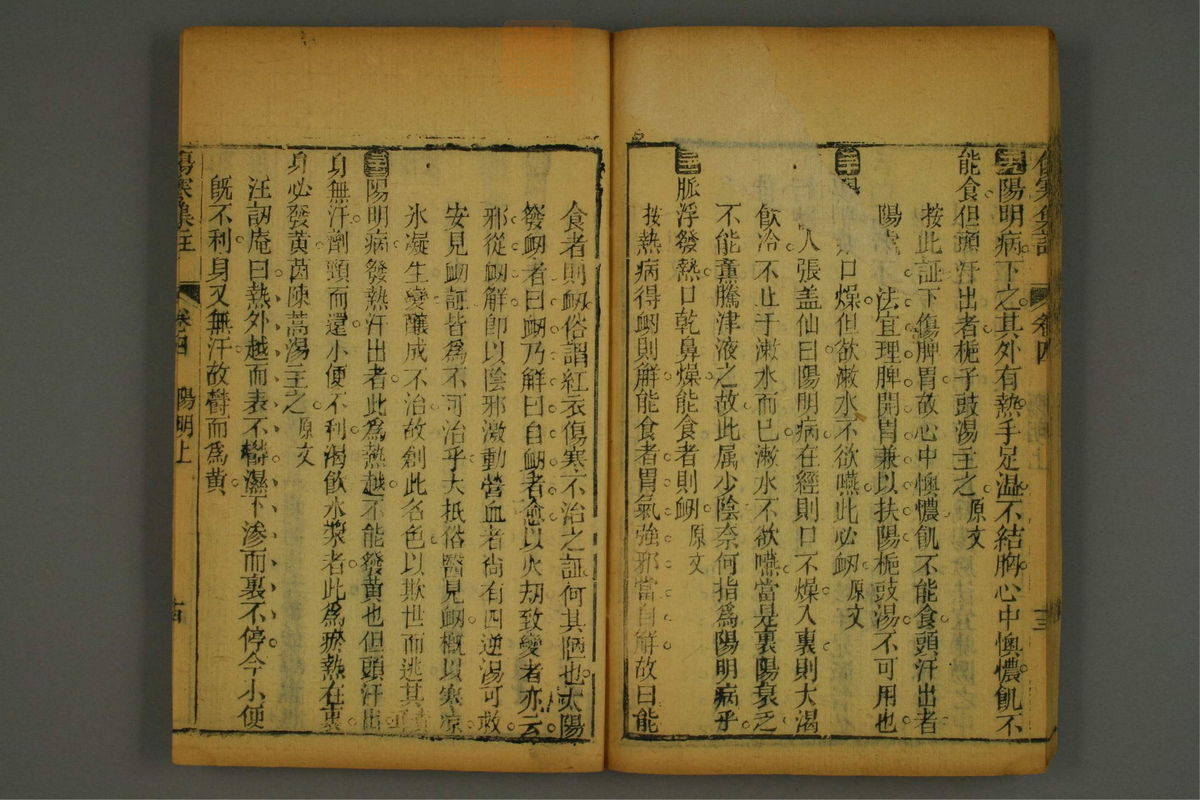 傷寒集註 卷四 十三
陽明病下之其外有熱手足溫不結胸心中懊憹飢不
能食但頭汗出者梔子豉湯主之 原文
按此証下傷脾胃故心中懊憹飢不能食頭汗出者
陽虛 法宜理脾開胃兼以扶陽梔豉湯不可用也
口燥但欲漱水不欲嚥此必衄 原文
人張盖仙曰陽明病在經則口不燥入裏則大渴
飲冷不止于漱水而已漱水不欲嚥當是裏陽衰乏
不能薰騰津液之故此属少陰奈何指為陽明病乎
脈浮發熱口乾鼻燥能食者則衄 原文
按熱病得衄則解能食者胃氣強邪當自解故曰能
食者則衄俗謂紅衣傷寒不治之証何其陋也太陽
發衄者曰衄乃解曰自衄者愈以火刼致變者亦云
邪從衄解卽以陰邪激動營血者尙有四逆湯可救
安見衄証皆為不可治乎大抵俗醫見衄概以寒凉
氷凝生變釀成不治故創此名色以欺世而逃其
陽明病發熱汗出者此為熱越不能發黃也但頭汗出
身無汗劑頸而還小便不利渴飲水漿者此為瘀熱在裏
身必發黃茵陳蒿湯主之 原文
汪訒庵曰熱外越而表不鬱濕下滲而裏不停今小便
旣不利身又無汗故鬱而為黃
傷寒集註 卷四 陽明上 十四